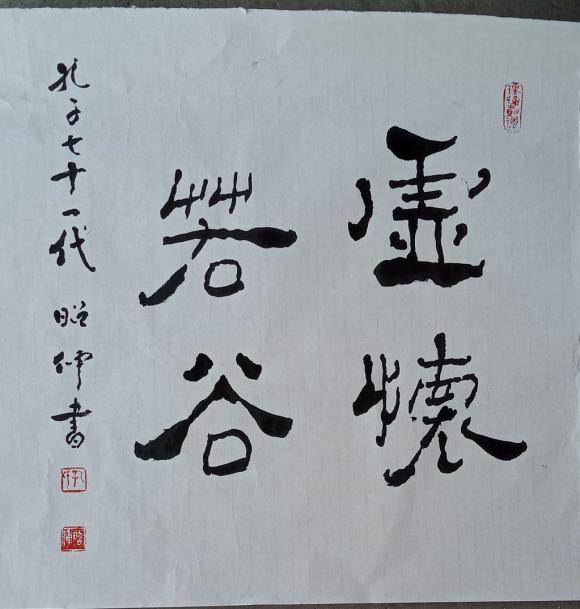 虚懷
若谷
孔子七十一代 昭倬書